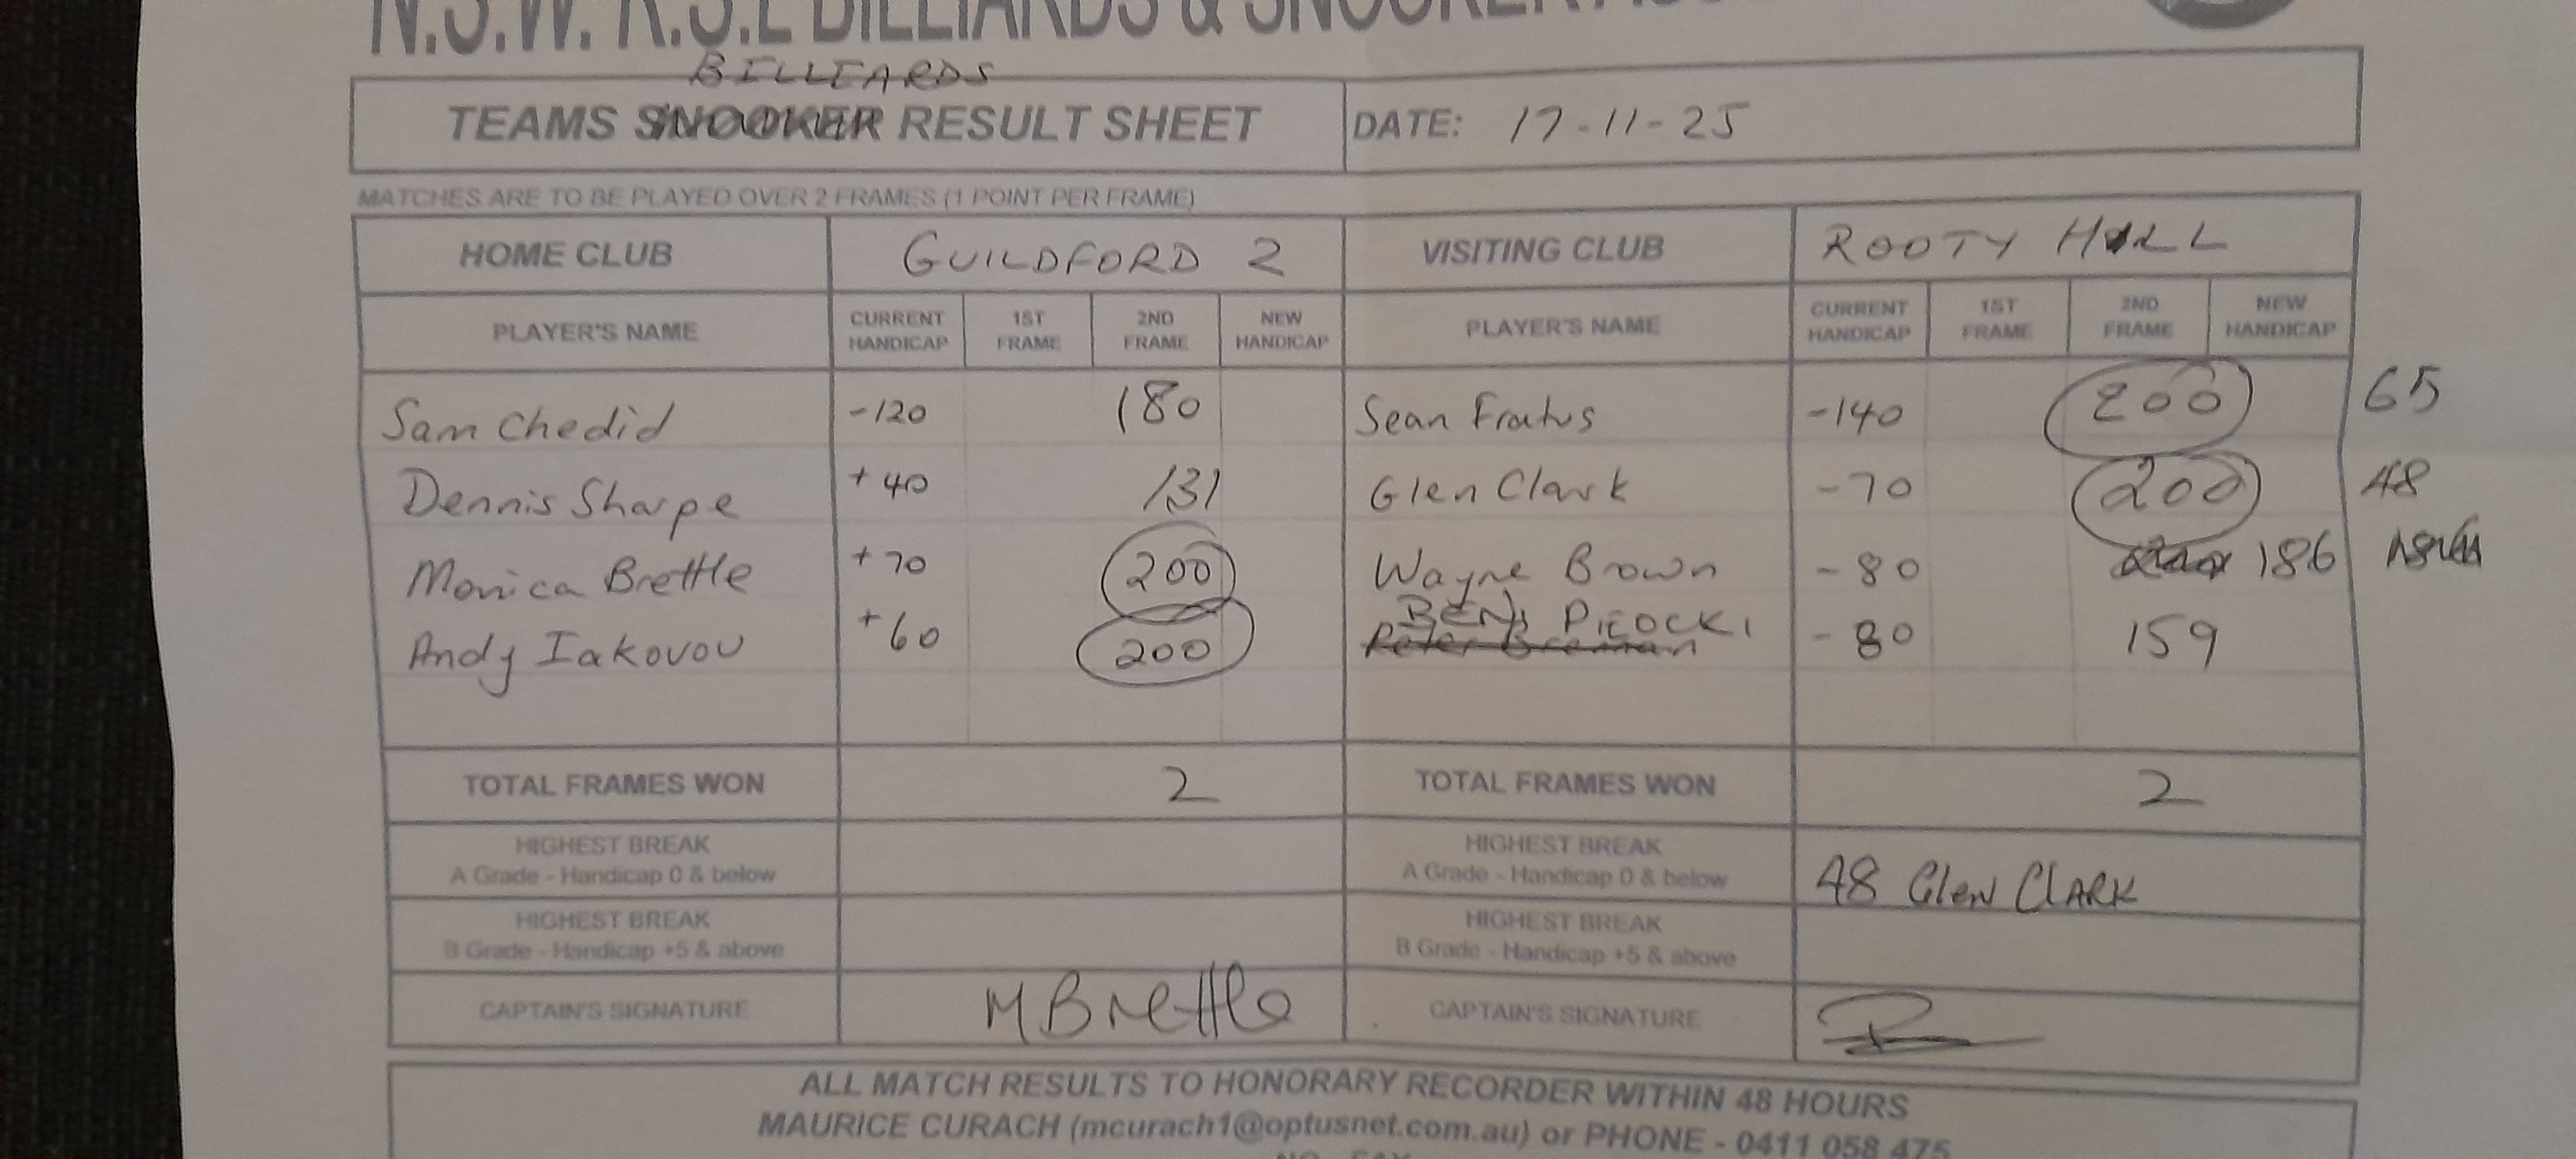 N.S.W. R.S.L BILLIARDS & SNOOKER
BILLIARDS
TEAMS SNOOKER RESULT SHEET DATE: 17-11-25
MATCHES ARE TO BE PLAYED OVER 2 FRAMES (1 POINT PER FRAME)
HOME CLUB GUILDFORD 2 VISITING CLUB ROOTY HILL
PLAYER'S NAME CURRENT HANDICAP 1ST FRAME 2ND FRAME NEW HANDICAP PLAYER'S NAME CURRENT HANDICAP 1ST FRAME 2ND FRAME NEW HANDICAP
Sam Chedid -120 180 Sean Fratus -140 200 65
Dennis Sharpe +40 131 Glen Clark -70 200 48
Monica Brettle +70 200 Wayne Brown -80 186
Andy Iakovou +60 200 BENJ PICOCKI -80 159
TOTAL FRAMES WON 2 TOTAL FRAMES WON 2
HIGHEST BREAK A Grade - Handicap 0 & below HIGHEST BREAK A Grade - Handicap 0 & below 48 Glen CLARK
HIGHEST BREAK B Grade - Handicap +5 & above HIGHEST BREAK B Grade - Handicap +5 & above
CAPTAIN'S SIGNATURE M Brettle CAPTAIN'S SIGNATURE
ALL MATCH RESULTS TO HONORARY RECORDER WITHIN 48 HOURS
MAURICE CURACH (mcurach1@optusnet.com.au) or PHONE - 0411 058 475